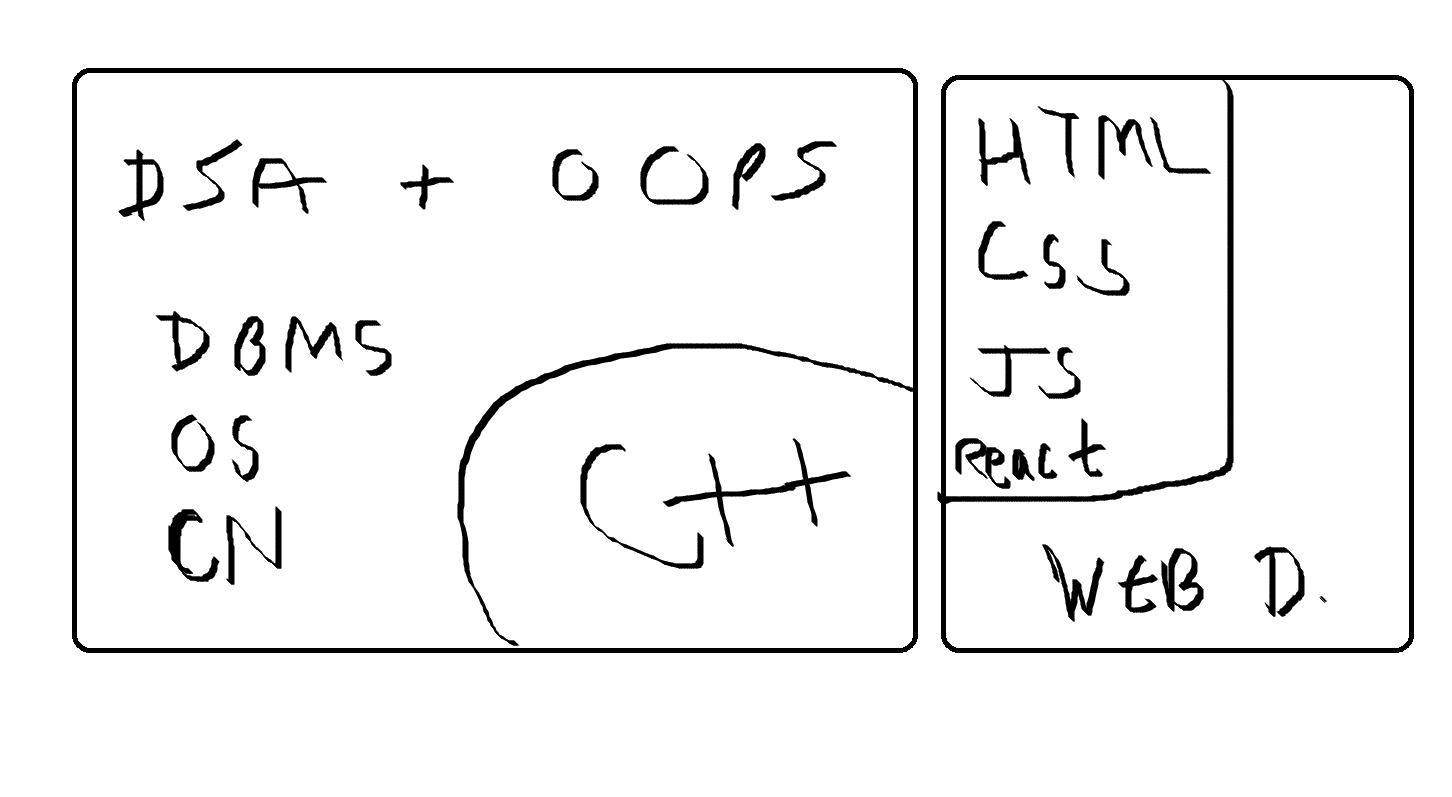 DSA + OOPS
DBMS
OS
CN
C++
HTML
CSS
JS
React
WEB D.